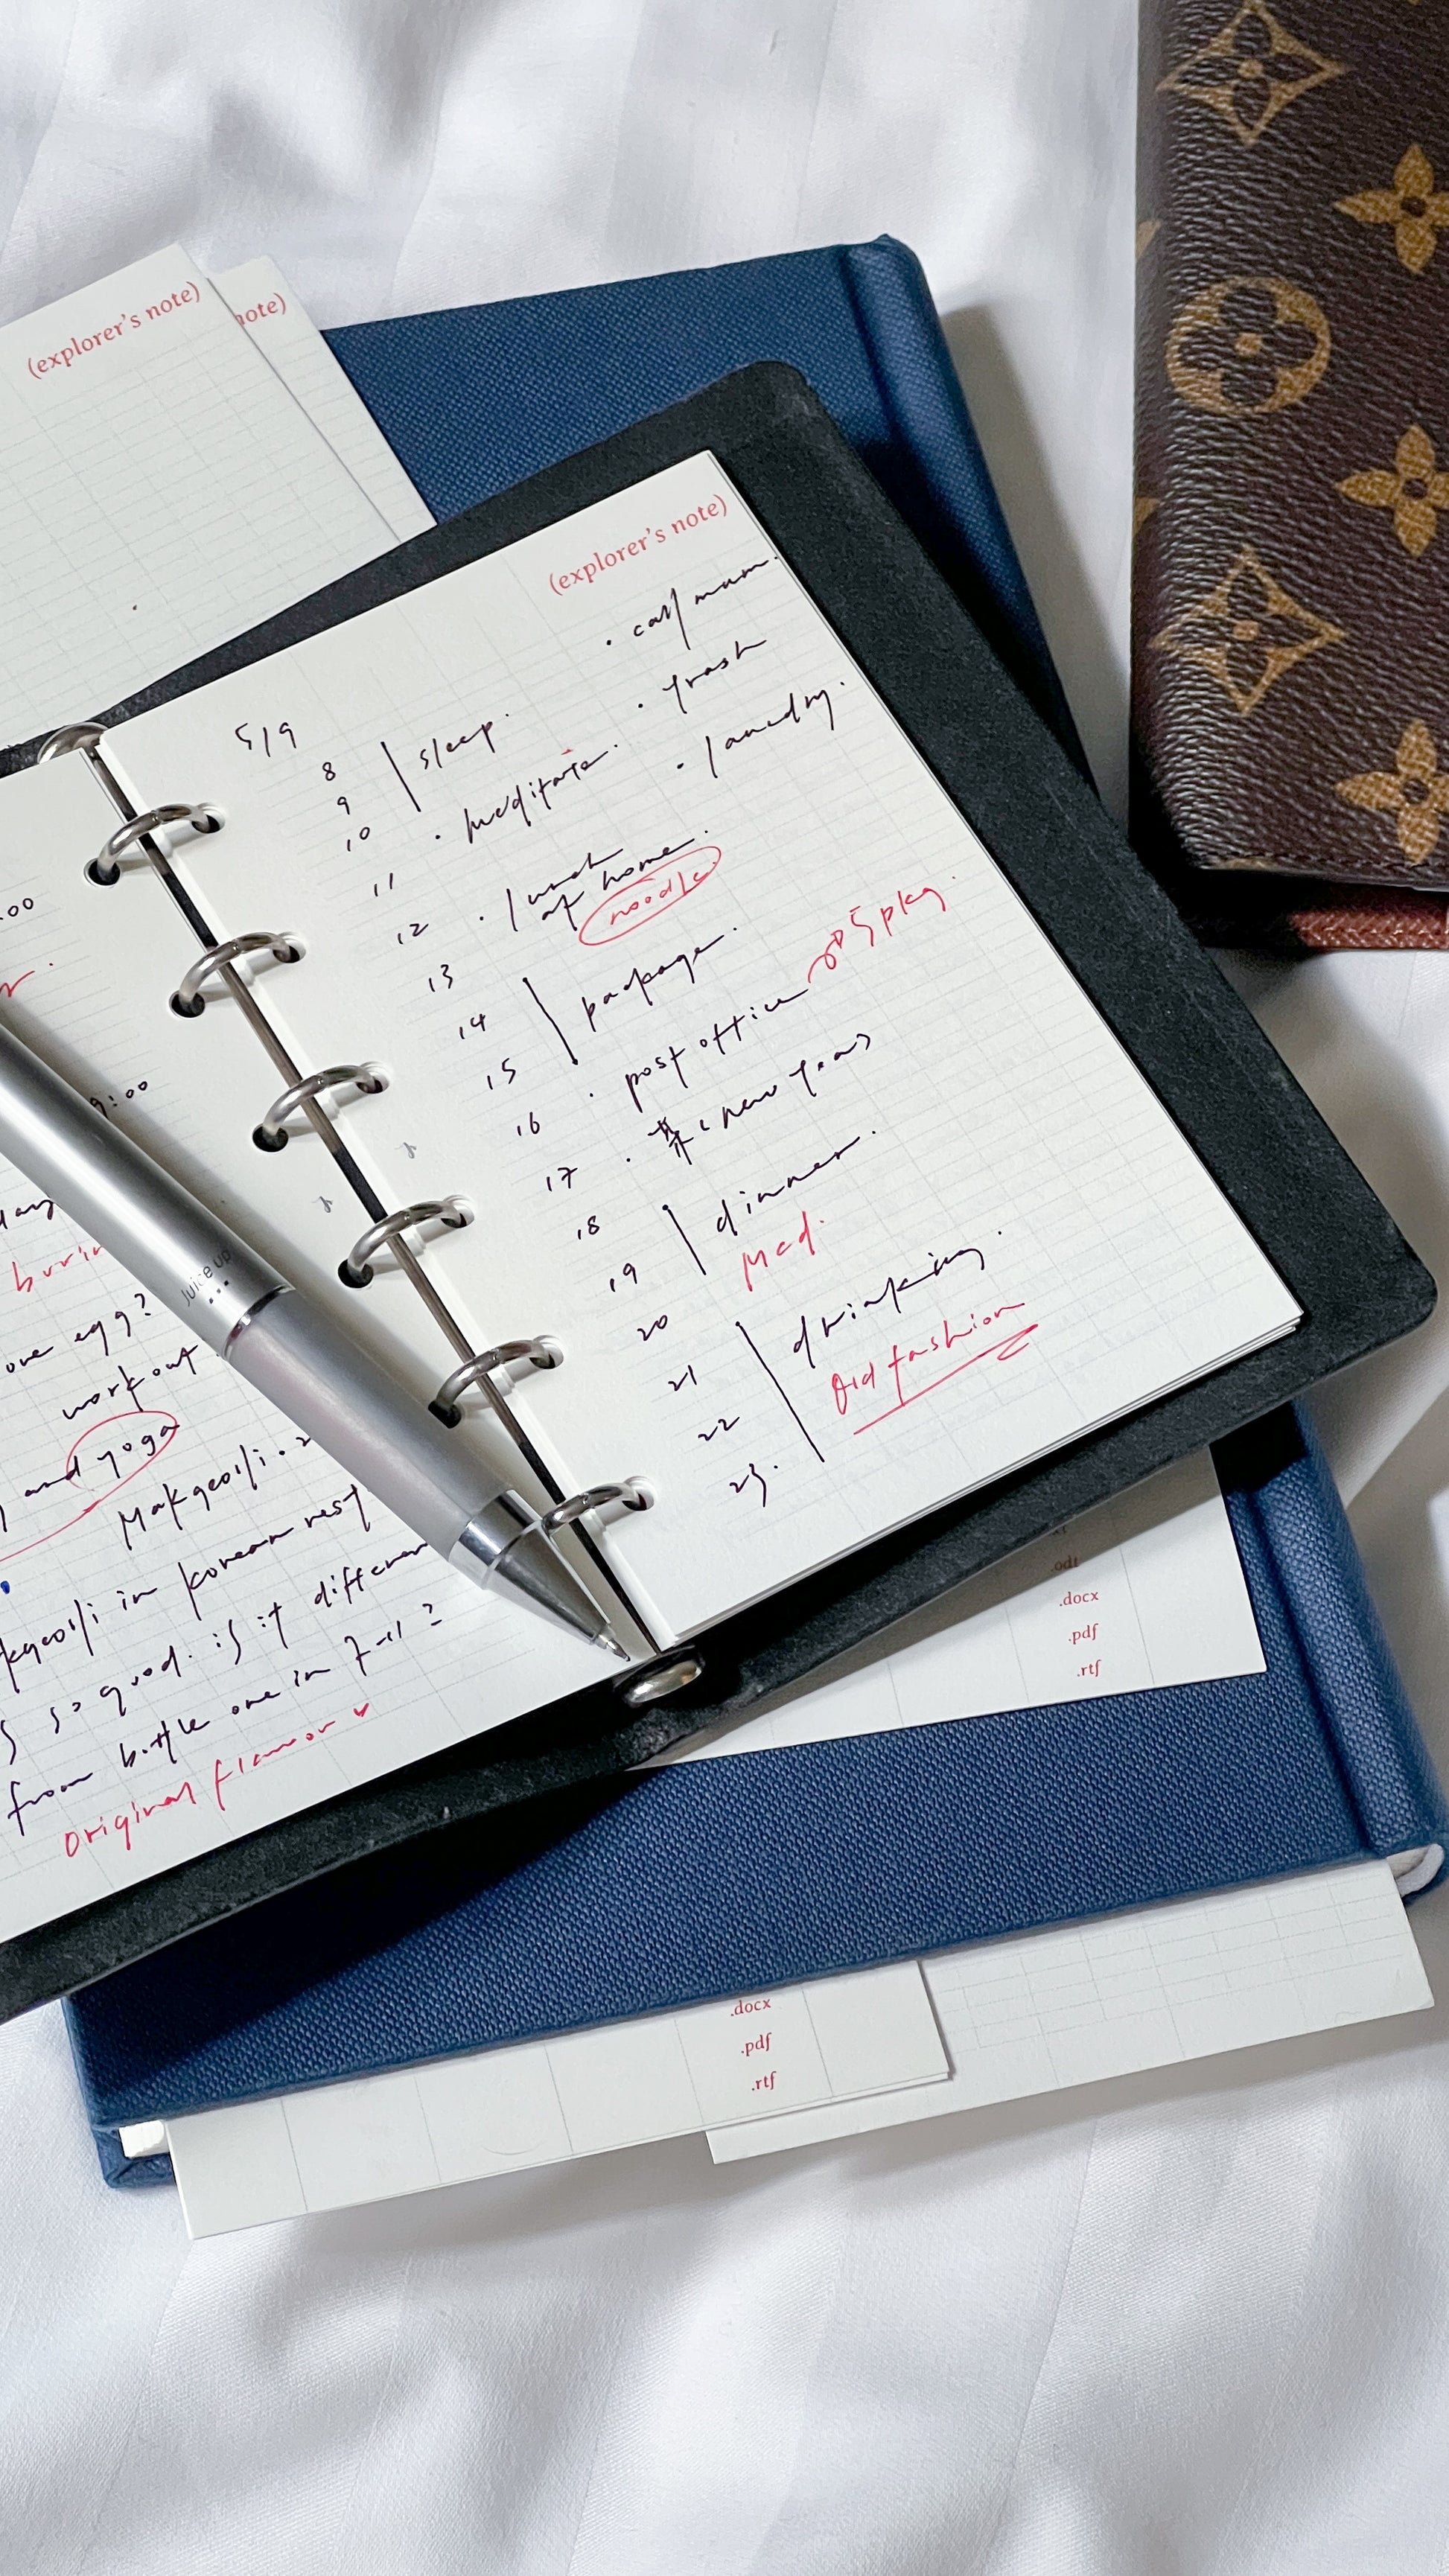 (explorer's note)
note)
(explorer's note)
· call mum.
· trash
· laundry.
5/9
8 sleep.
9
10 · meditate.
11
12 · lunch
at home.
noodle
13
14 package.
15
16 · post office 5 pkg.
17 · new years
18 dinner.
19 Mcd.
20
21 drinking.
22 Old fashion
23.
:00
9:00
day
one egg?
workout
and yoga
Makgeolli.
kgeolli in korean rest
so good. is it differen
from bottle one in 7-11?
original flavor ♥
Juice up
.odt
.docx
.pdf
.rtf
.docx
.pdf
.rtf